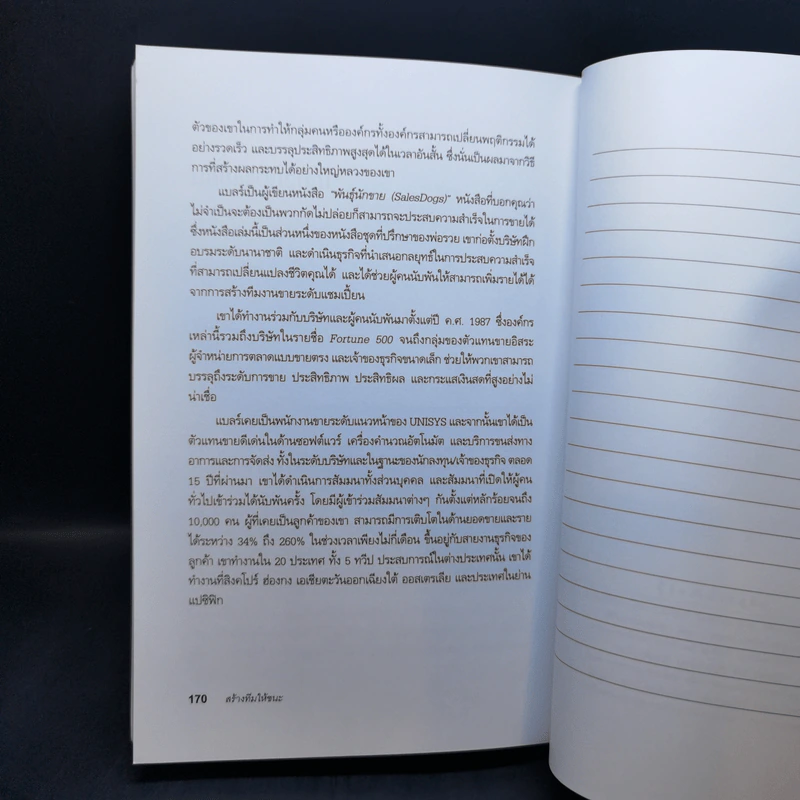 ตัวของเขาในการทำให้กลุ่มคนหรือองค์กรทั้งองค์กรสามารถเปลี่ยนพฤติกรรมได้
อย่างรวดเร็ว และบรรลุประสิทธิภาพสูงสุดได้ในเวลาอันสั้น ซึ่งนั่นเป็นผลมาจากวิธี
การที่สร้างผลกระทบได้อย่างใหญ่หลวงของเขา
แบลร์เป็นผู้เขียนหนังสือ "พันธุ์นักขาย (SalesDogs)" หนังสือที่บอกคุณว่า
ไม่จำเป็นจะต้องเป็นพวกกัดไม่ปล่อยก็สามารถจะประสบความสำเร็จในการขายได้
ซึ่งหนังสือเล่มนี้เป็นส่วนหนึ่งของหนังสือชุดที่ปรึกษาของพ่อรวย เขาก่อตั้งบริษัทฝึก
อบรมระดับนานาชาติ และดำเนินธุรกิจที่นำเสนอกลยุทธ์ในการประสบความสำเร็จ
ที่สามารถเปลี่ยนแปลงชีวิตคุณได้ และได้ช่วยผู้คนนับพันให้สามารถเพิ่มรายได้ได้
จากการสร้างทีมงานขายระดับแชมเปี้ยน
เขาได้ทำงานร่วมกับบริษัทและผู้คนนับพันมาตั้งแต่ปี ค.ศ. 1987 ซึ่งองค์กร
เหล่านี้รวมถึงบริษัทในรายชื่อ Fortune 500 จนถึงกลุ่มของตัวแทนขายอิสระ
ผู้จำหน่ายการตลาดแบบขายตรง และเจ้าของธุรกิจขนาดเล็ก ช่วยให้พวกเขาสามารถ
บรรลุถึงระดับการขาย ประสิทธิภาพ ประสิทธิผล และกระแสเงินสดที่สูงอย่างไม่
น่าเชื่อ
แบลร์เคยเป็นพนักงานขายระดับแนวหน้าของ UNISYS และจากนั้นเขาได้เป็น
ตัวแทนขายดีเด่นในด้านซอฟต์แวร์ เครื่องคำนวณอัตโนมัต และบริการขนส่งทาง
อากาศและการจัดส่ง ทั้งในระดับบริษัทและในฐานะของนักลงทุน/เจ้าของธุรกิจ ตลอด
15 ปีที่ผ่านมา เขาได้ดำเนินการสัมมนาทั้งส่วนบุคคล และสัมมนาที่เปิดให้ผู้คน
ทั่วไปเข้าร่วมได้นับพันครั้ง โดยมีผู้เข้าร่วมสัมมนาต่างๆ กันตั้งแต่หลักร้อยจนถึง
10,000 คน ผู้ที่เคยเป็นลูกค้าของเขา สามารถมีการเติบโตในด้านยอดขายและราย
ได้ระหว่าง 34% ถึง 260% ในช่วงเวลาเพียงไม่กี่เดือน ขึ้นอยู่กับสายงานธุรกิจของ
ลูกค้า เขาทำงานใน 20 ประเทศ ทั้ง 5 ทวีป ประสบการณ์ในต่างประเทศนั้น เขาได้
ทำงานที่สิงคโปร์ ฮ่องกง เอเชียตะวันออกเฉียงใต้ ออสเตรเลีย และประเทศในย่าน
แปซิฟิก
170 สร้างทีมให้ชนะ